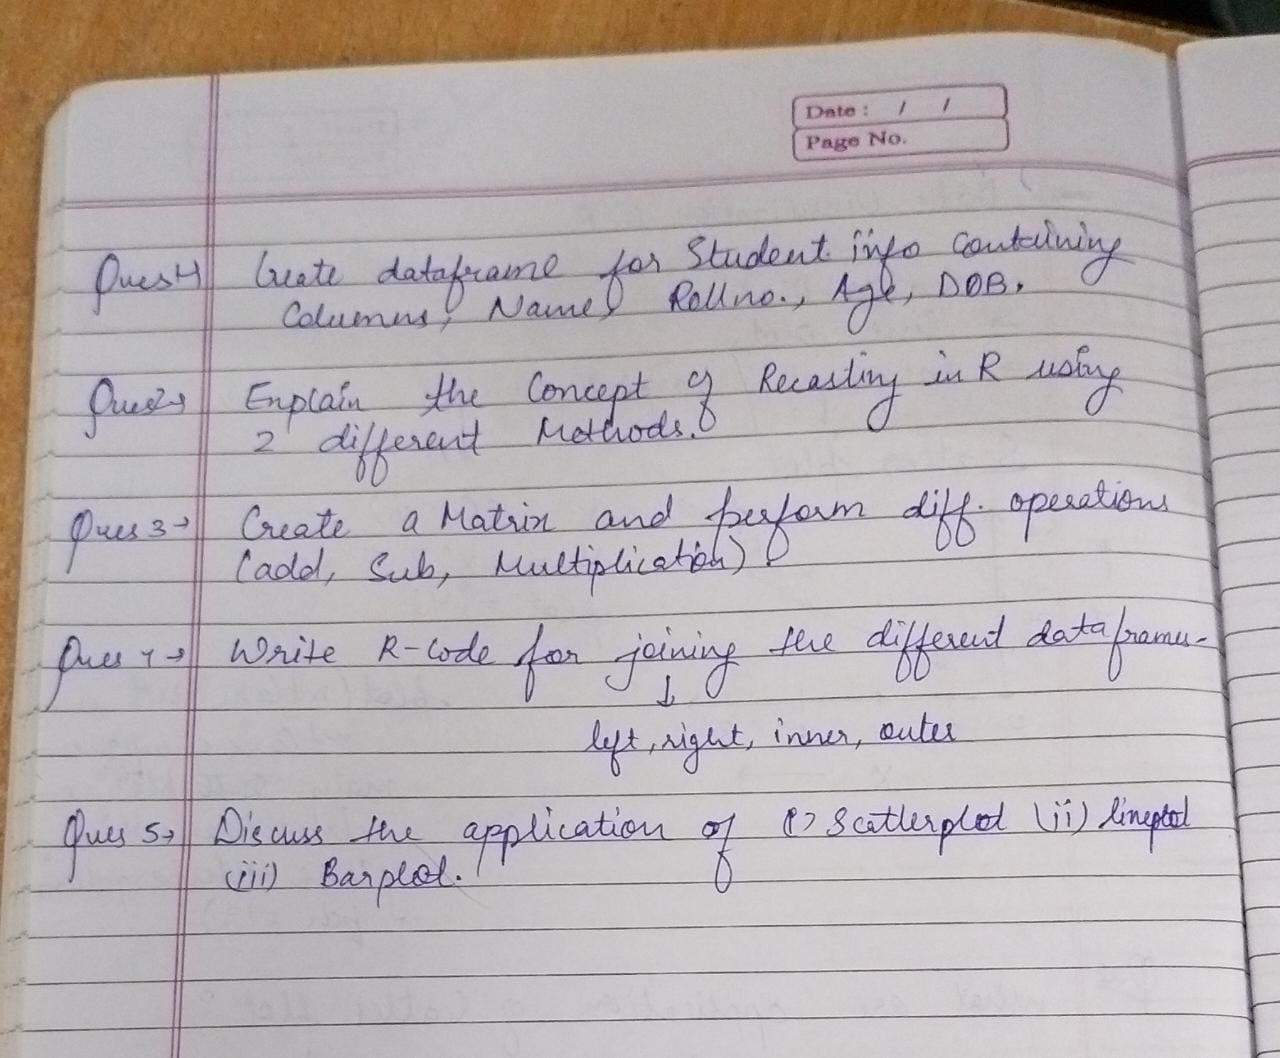 Date : / /
Page No.
Ques 1→ Create dataframe for Student info Containing
Columns, Name, Rollno., Age, DOB.
Ques 2→ Explain the Concept of Recasting in R using
2 different Methods.
Ques 3→ Create a Matrix and perform diff. operations
(add, Sub, Multiplication)
Ques 4→ Write R-Code for joining the different dataframes-
↓
left, right, inner, outer
Ques 5→ Discuss the application of (i) Scatterplot (ii) lineplot
(iii) Barplot.